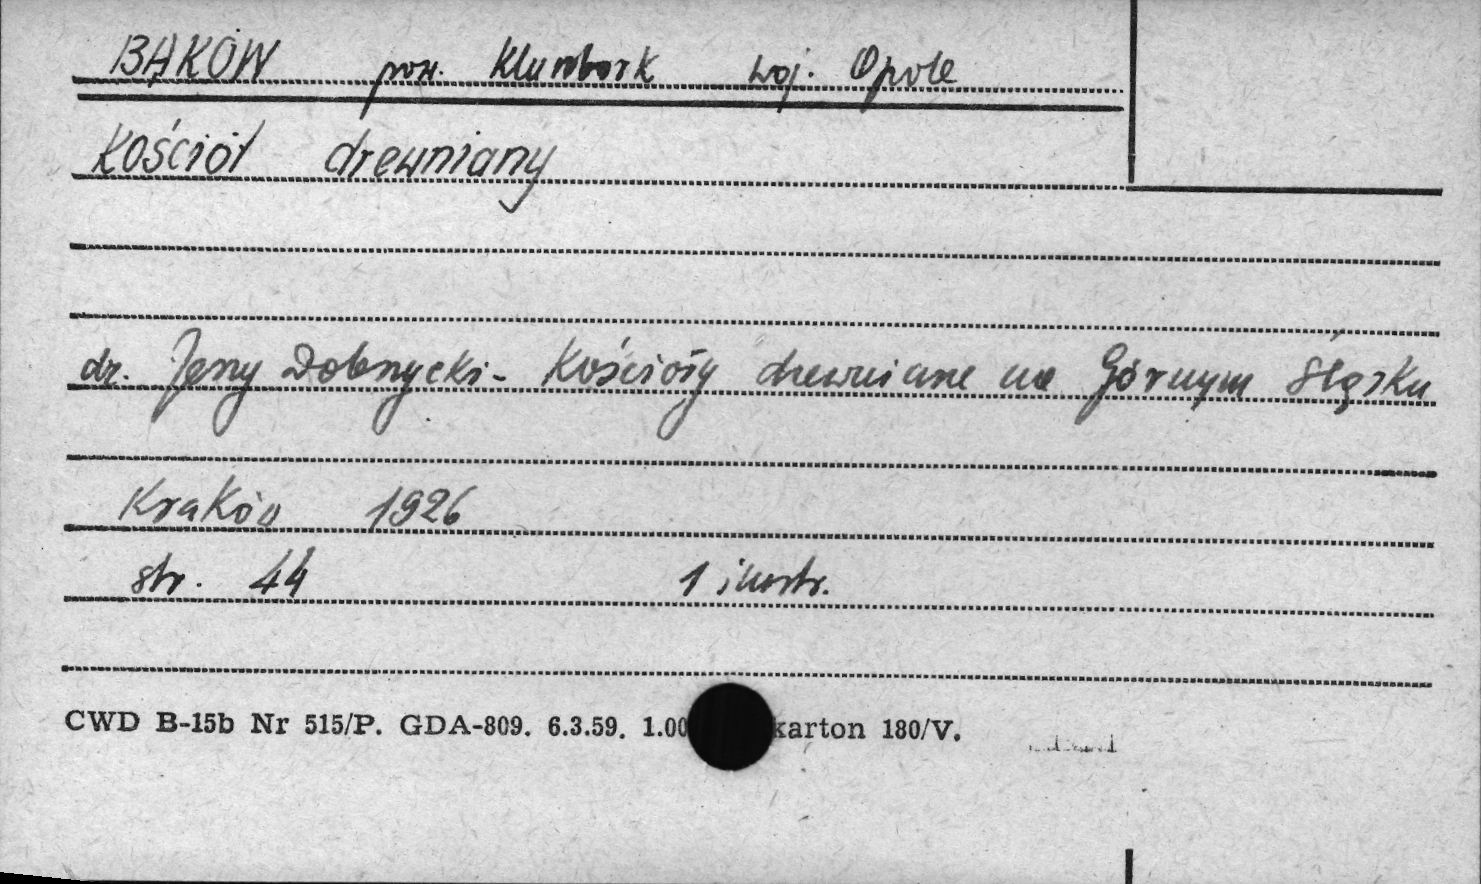 BĄKÓW pow. Kluczbork woj. Opole
Kościół drewniany
dr. Jerzy Dobrzycki - Kościoły drewniane na Górnym Śląsku
Kraków 1926
str. 44 1 ilustr.
CWD B-15b Nr 515/P. GDA-809. 6.3.59. 1.00 karton 180/V.